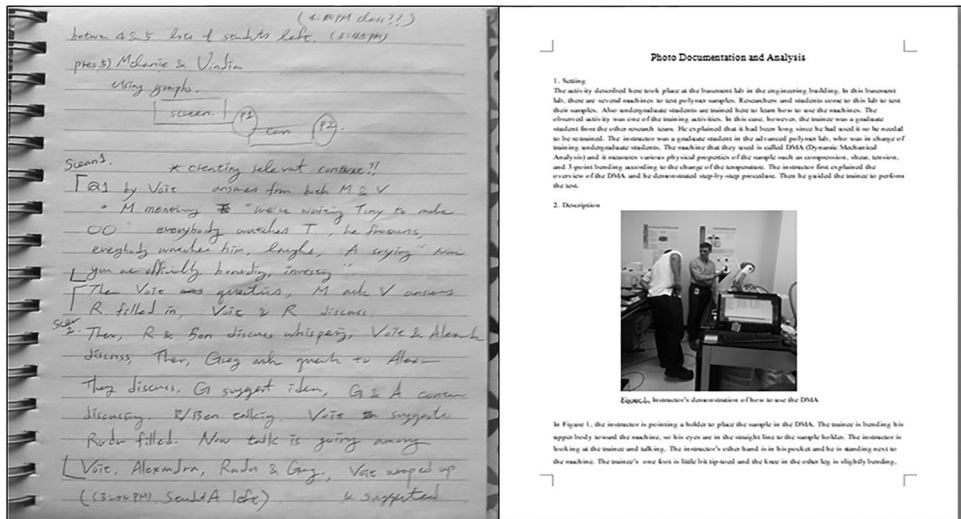 between 4 & 5 lots of students left. (2:45PM)
pres 5) Melanie & Vindia
using graphs.
screen P1
P2
Scean 1. * creating relevant context?!
Q1 by Voit answers from both M & V
" M mentions "we're waiting Tony to make
OO" everybody watches T, he
everybody watches him, laughs, A saying "Now
you are officially investing".
Then Voit questions, M ask V answers
R filled in, Voit & R discuss.
Then, R & Ben discuss whispering, Voit & Alexandra
discuss, Then, Greg ask question to Alexan
They discuss, G suggest idea, G & A continue
discussing. R/Ben talking. Voit suggests
Radu filled. Now talk is going among
Voit, Alexandra, Radu & Greg, Voit wraped up
& suggested
Photo Documentation and Analysis
1. Setting
The activity described here took place at the basement lab in the engineering building. In this basement
lab, there are several machines to test polymer samples. Researchers and students come to this lab to test
their samples. Also undergraduate students are trained here to learn how to use the machines. The
observed activity was one of the training activities. In this case, however, the trainee was a graduate
student from the other research team. He explained that it had been long since he had used it so he needed
to be re-trained. The instructor was a graduate student in the advanced polymer lab, who was in charge of
training undergraduate students. The machine that they used is called DMA (Dynamic Mechanical
Analysis) and it measures various physical properties of the sample such as compression, shear, tension,
and 3-point bending according to the change of the temperature. The instructor first explained the
overview of the DMA and he demonstrated step-by-step procedure. Then he guided the trainee to perform
the test.
2. Description
Figure 1. Instructor's demonstration of how to use the DMA
In Figure 1, the instructor is pointing a holder to place the sample in the DMA. The trainee is bending his
upper body toward the machine, so his eyes are in the straight line to the sample holder. The instructor is
looking at the trainee and talking. The instructor's other hand is in his pocket and he is standing next to
the machine. The trainee's one foot is little bit tip-toed and the knee in the other leg is slightly bending.